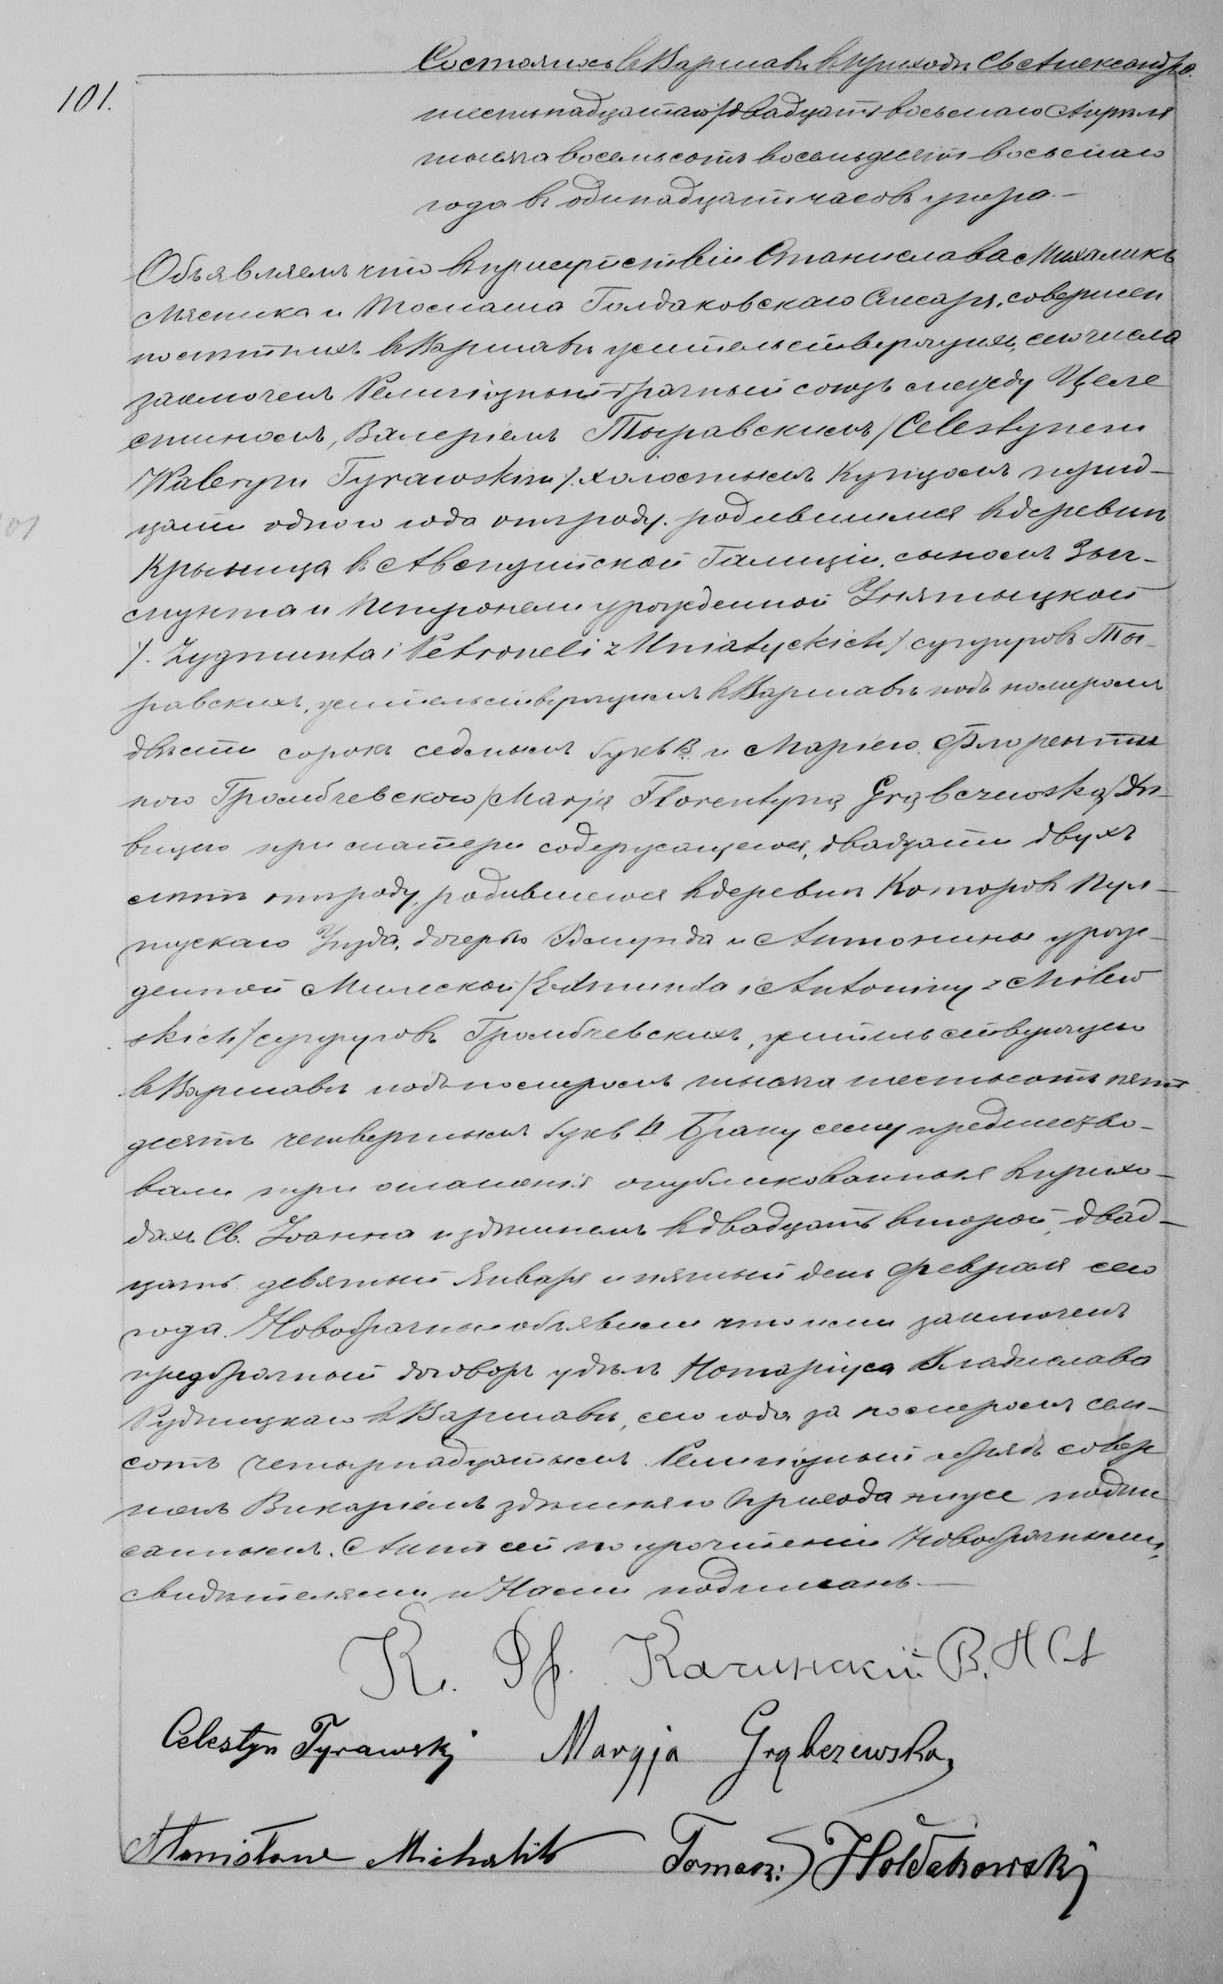 101.
Состоялось въ Варшавѣ въ приходѣ Св Александра
шестнадцатаго/двадцать восьмаго Апрѣля
тысяча восемьсотъ восемьдесятъ восьмаго
года въ одинадцать часовъ утра.–
Объявляемъ что въ присутствіи Станислава Михаликъ
Мясника и Томаша Голдаковскаго Слесаря, совершен
нолѣтнихъ въ Варшавѣ жительствующихъ, сего числа
заключенъ Религіозный брачный союзъ между Целе
стиномъ, Валеріемъ Тыравскимъ /Celestynem
Walerym Tyrawskim/. холостымъ Купцомъ трид–
цати одного года отъ роду. родившимся въ деревнѣ
Крыница въ Австрійской Галиціи. сыномъ Зыг–
мунта и Петронели урожденной Уніятыцкой
/. Zygmunta i Petroneli z Uniatyckich/ супруговъ Ты–
равскихъ, жительствующимъ въ Варшавѣ подъ номеромъ
двѣсти сорокъ седьмымъ букв В. и Маріею Флоренти
ною Громбчевскою /Marją Florentyną Grąbczewską/ Дѣ–
вицею при матери содержащеюся, двадцати двухъ
лѣтъ отъ роду, родившеюся въ деревнѣ Которовъ Пул–
тускаго Уѣзда, дочерью Эдмунда и Антонины урож–
денной Милевской /Edmunda i Antoniny z Milew
skich/ супруговъ Громбчевскихъ, жительствующею
въ Варшавѣ подъ номеромъ тысяча шестьсотъ пять
десятъ четвертымъ букв Браку сему предшество–
вали три оглашенія опубликованныя въ прихо–
дахъ Св. Іоанна и здѣшнемъ въ двадцать второй, двад–
цать девятый Января и пятый день Февраля сего
года. Новобрачные объявили что ими заключенъ
предбрачный договоръ у дѣлъ Нотаріуса Владислава
Рудницкаго въ Варшавѣ, сего года за номеромъ сем–
сотъ четырнадцатымъ. Религіозный обрядъ совер
шенъ Викаріемъ здѣшняго прихода ниже подпи
саннымъ. Актъ сей по прочтеніи Новобрачными,
свидѣтелями и Нами подписанъ.–
К. Ф. Качинскій В.
Celestyn Tyrawski Maryja Grąbczewska
Stanisław Michalik Tomasz Hołdakowski